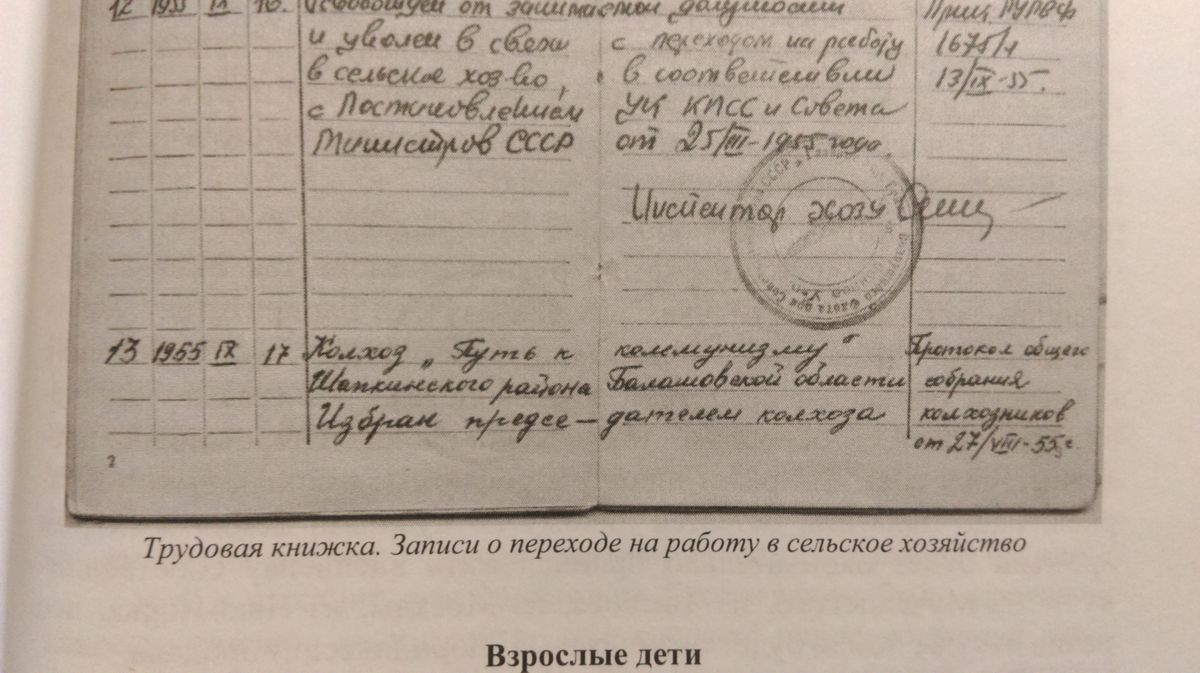 12 1955 IX 16. Освобожден от занимаемой должности Приц ГУГВФ
и уволен в связи с переходом на работу 1675/л
в сельское хоз-во, в соответствии 13/IX-55.
с Постановлением ЦК КПСС и Совета
Министров СССР от 25/III-1955 года.
Инспектор
13 1955 IX 17 Колхоз „Путь к коммунизму" Протокол общего
Шапкинского района Балашовской области собрания
Избран предсе- дателем колхоза колхозников
от 27/VIII-55 г.
2
Трудовая книжка. Записи о переходе на работу в сельское хозяйство
Взрослые дети